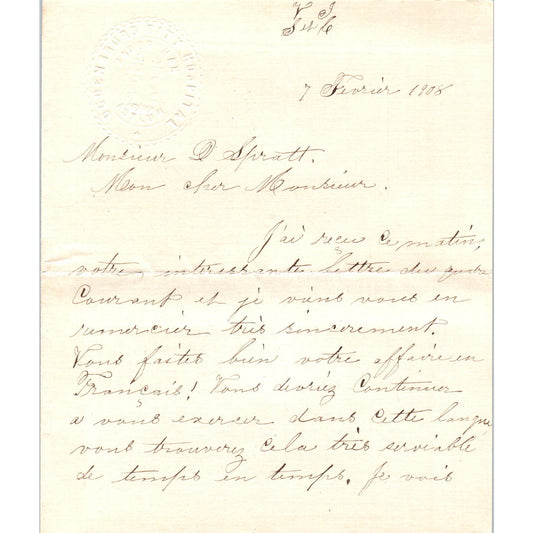 V J
S et C
7 Fevrier 1908
Monsieur D Spratt.
Mon cher Monsieur.
J'ai recu ce matin,
votre interessante lettre du quatre
Courant et je viens vous en
remercier très sincerement.
Vous faites bien votre affaire en
Français! Vous devriez Continuer
a vous exercer dans cette langue
vous trouverez cela très serviable
de temps en temps. Je vois